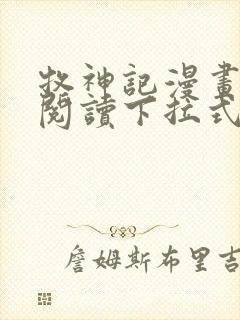 牧神記漫畫
閱讀下拉式
詹姆斯布里吉